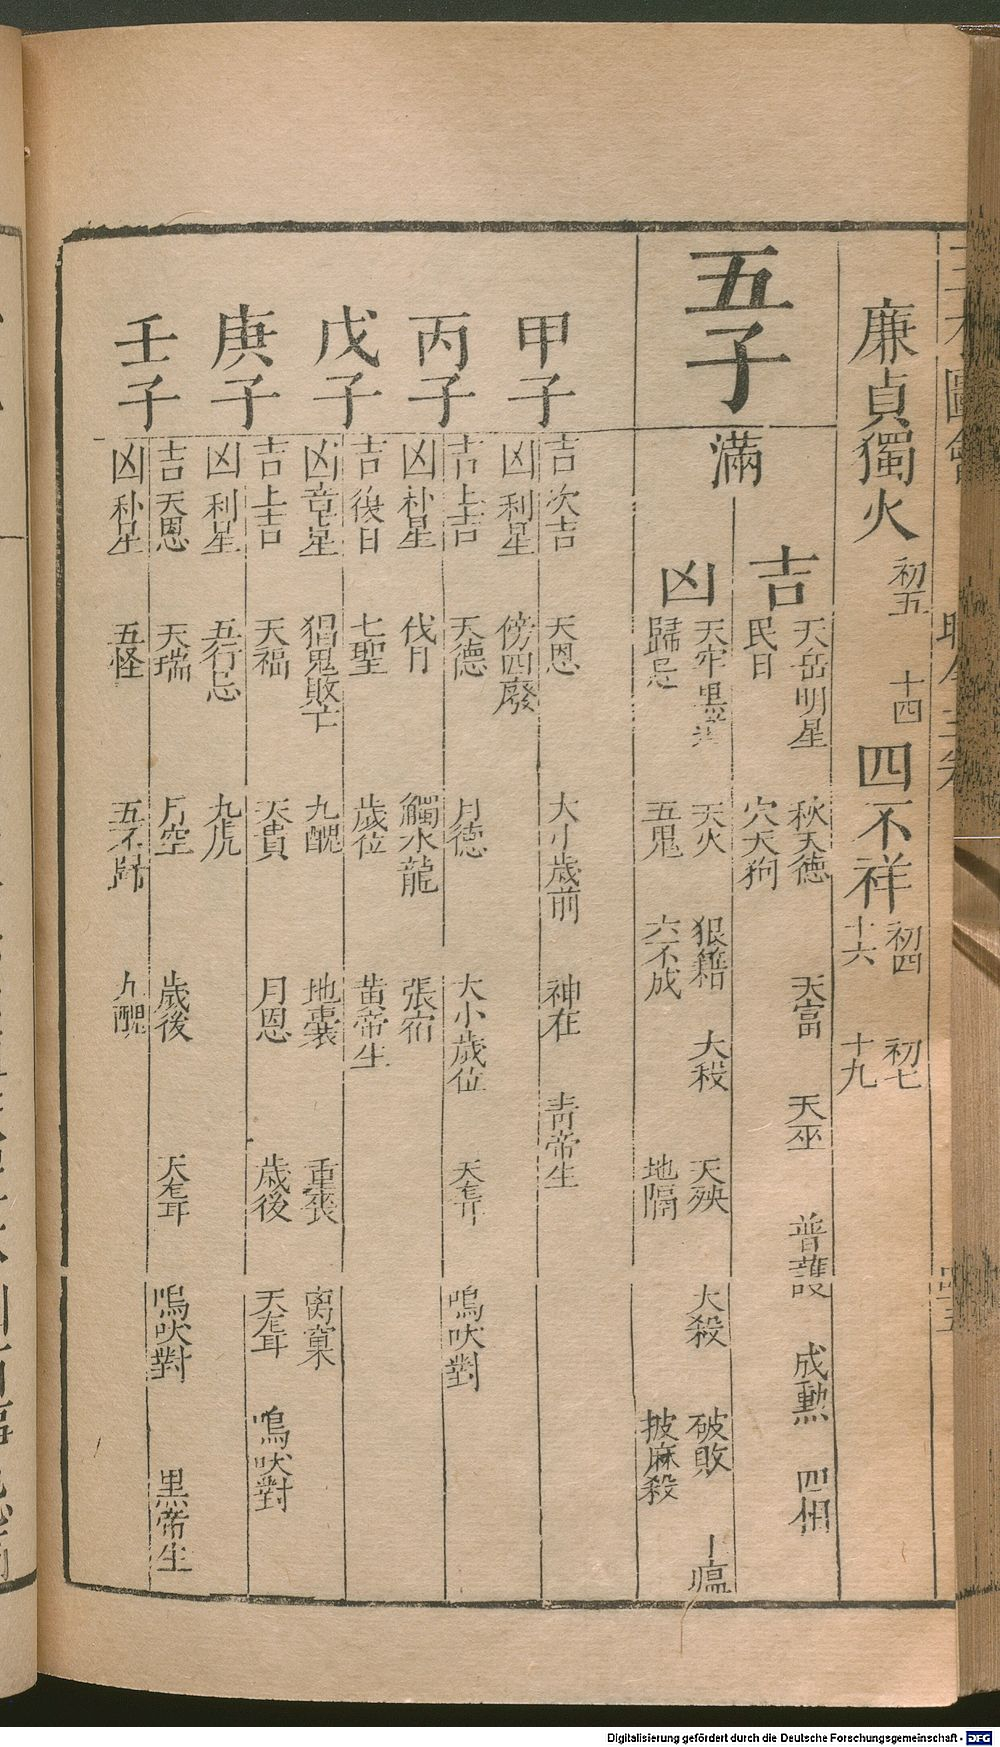 廉貞獨火 初五 十四 四不祥 初四 初七 十六 十九
五子 滿
吉 天岳明星 秋天德 天富 天巫 普護 成勲 四相
民日 穴天狗
凶 天牢黒 天火 狠籍 大殺 天殃 大殺 破敗 瘟
歸忌 五鬼 六不成 地隔 披麻殺
甲子
吉 次吉 天恩 大小歲前 神在 青帝生
凶 利星 傍四廢
丙子
吉 上吉 天德 月德 大小歲位 天聾 鳴吠對
凶 朴星 伐日 觸水龍 張宿
戊子
吉 復日 七聖 歲位 黄帝生
凶 章星 猖鬼敗亡 九醜 地囊 重喪 离窠
庚子
吉 上吉 天福 天貴 月恩 歲後 天聾 鳴吠對
凶 利星 五行忌 九虎
壬子
吉 天恩 天瑞 月空 歲後 天聾 鳴吠對 黒帝生
凶 朴星 五怪 五不歸 九醜
Digitalisierung gefördert durch die Deutsche Forschungsgemeinschaft - DFG